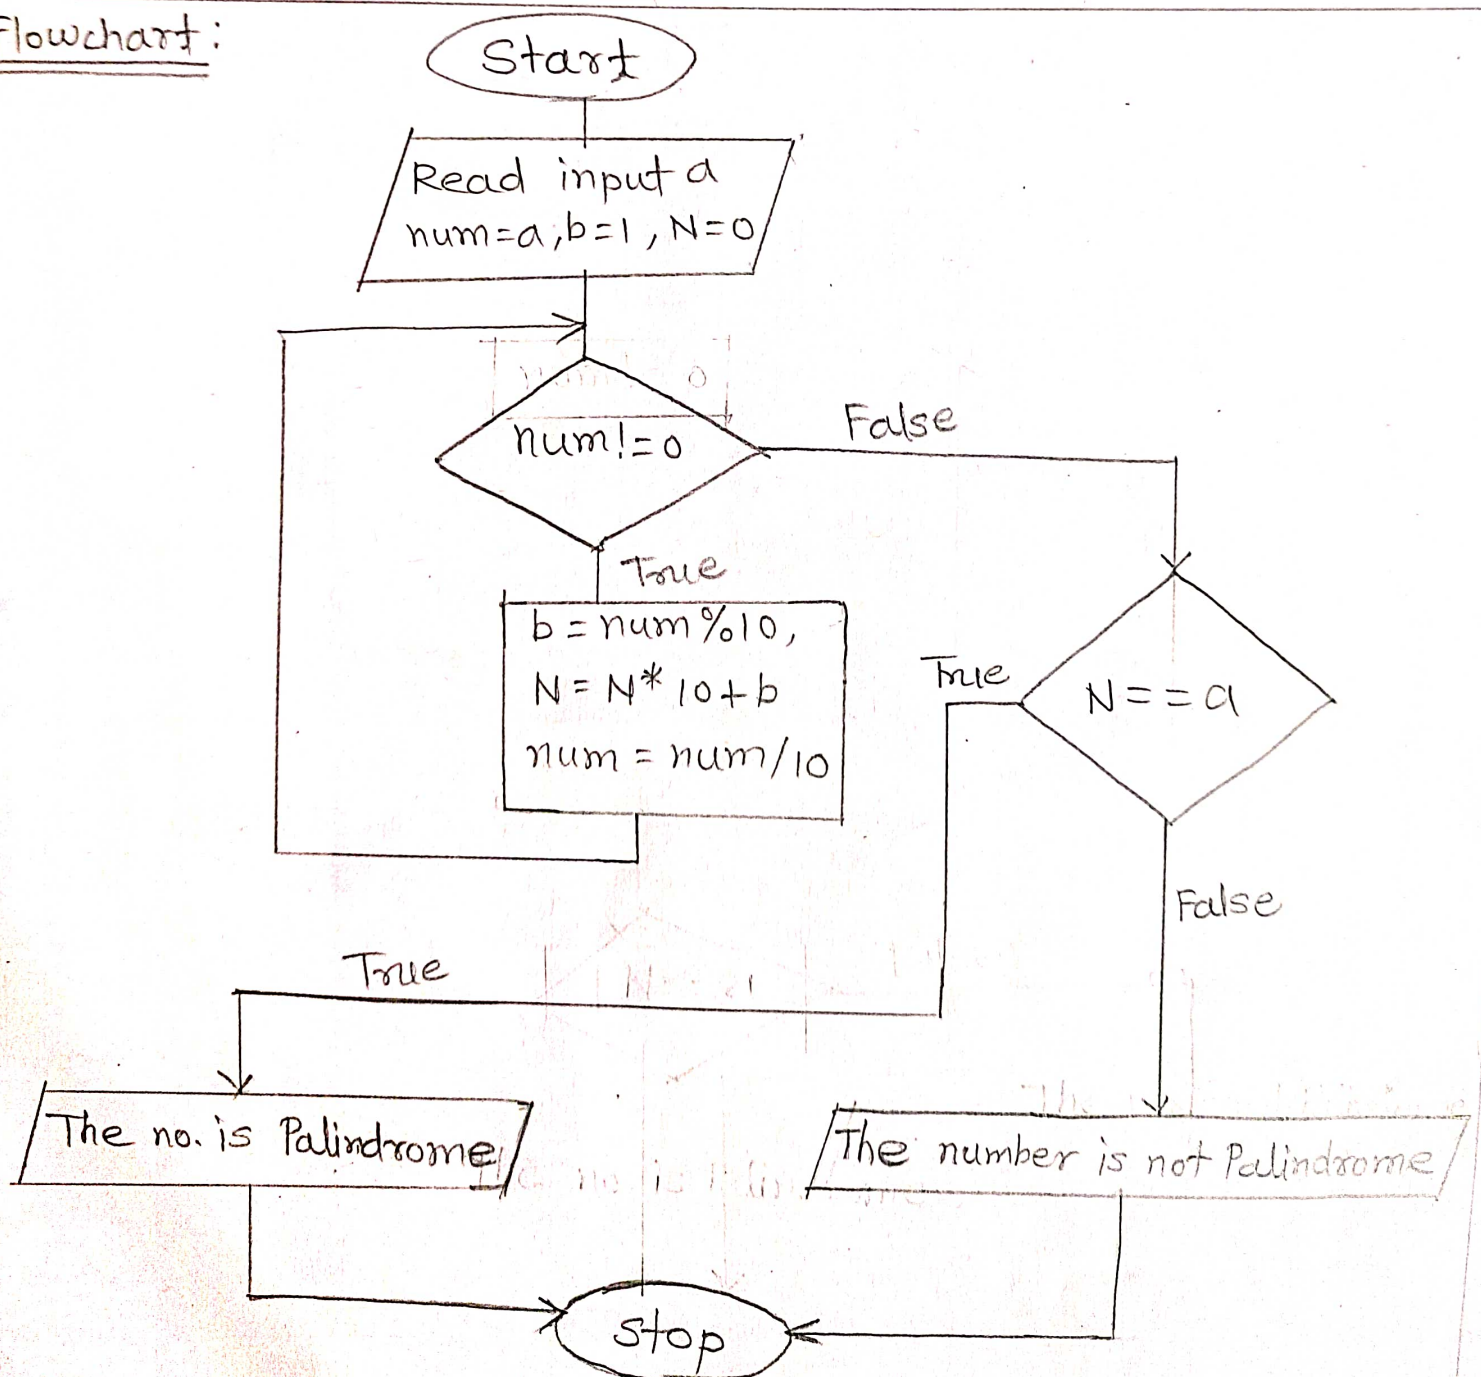 Flowchart:
Start
Read input a
num=a,b=1, N=0
num!=0
False
True
b=num%10,
N=N*10+b
num=num/10
True
N==a
False
True
The no. is Palindrome
The number is not Palindrome
Stop